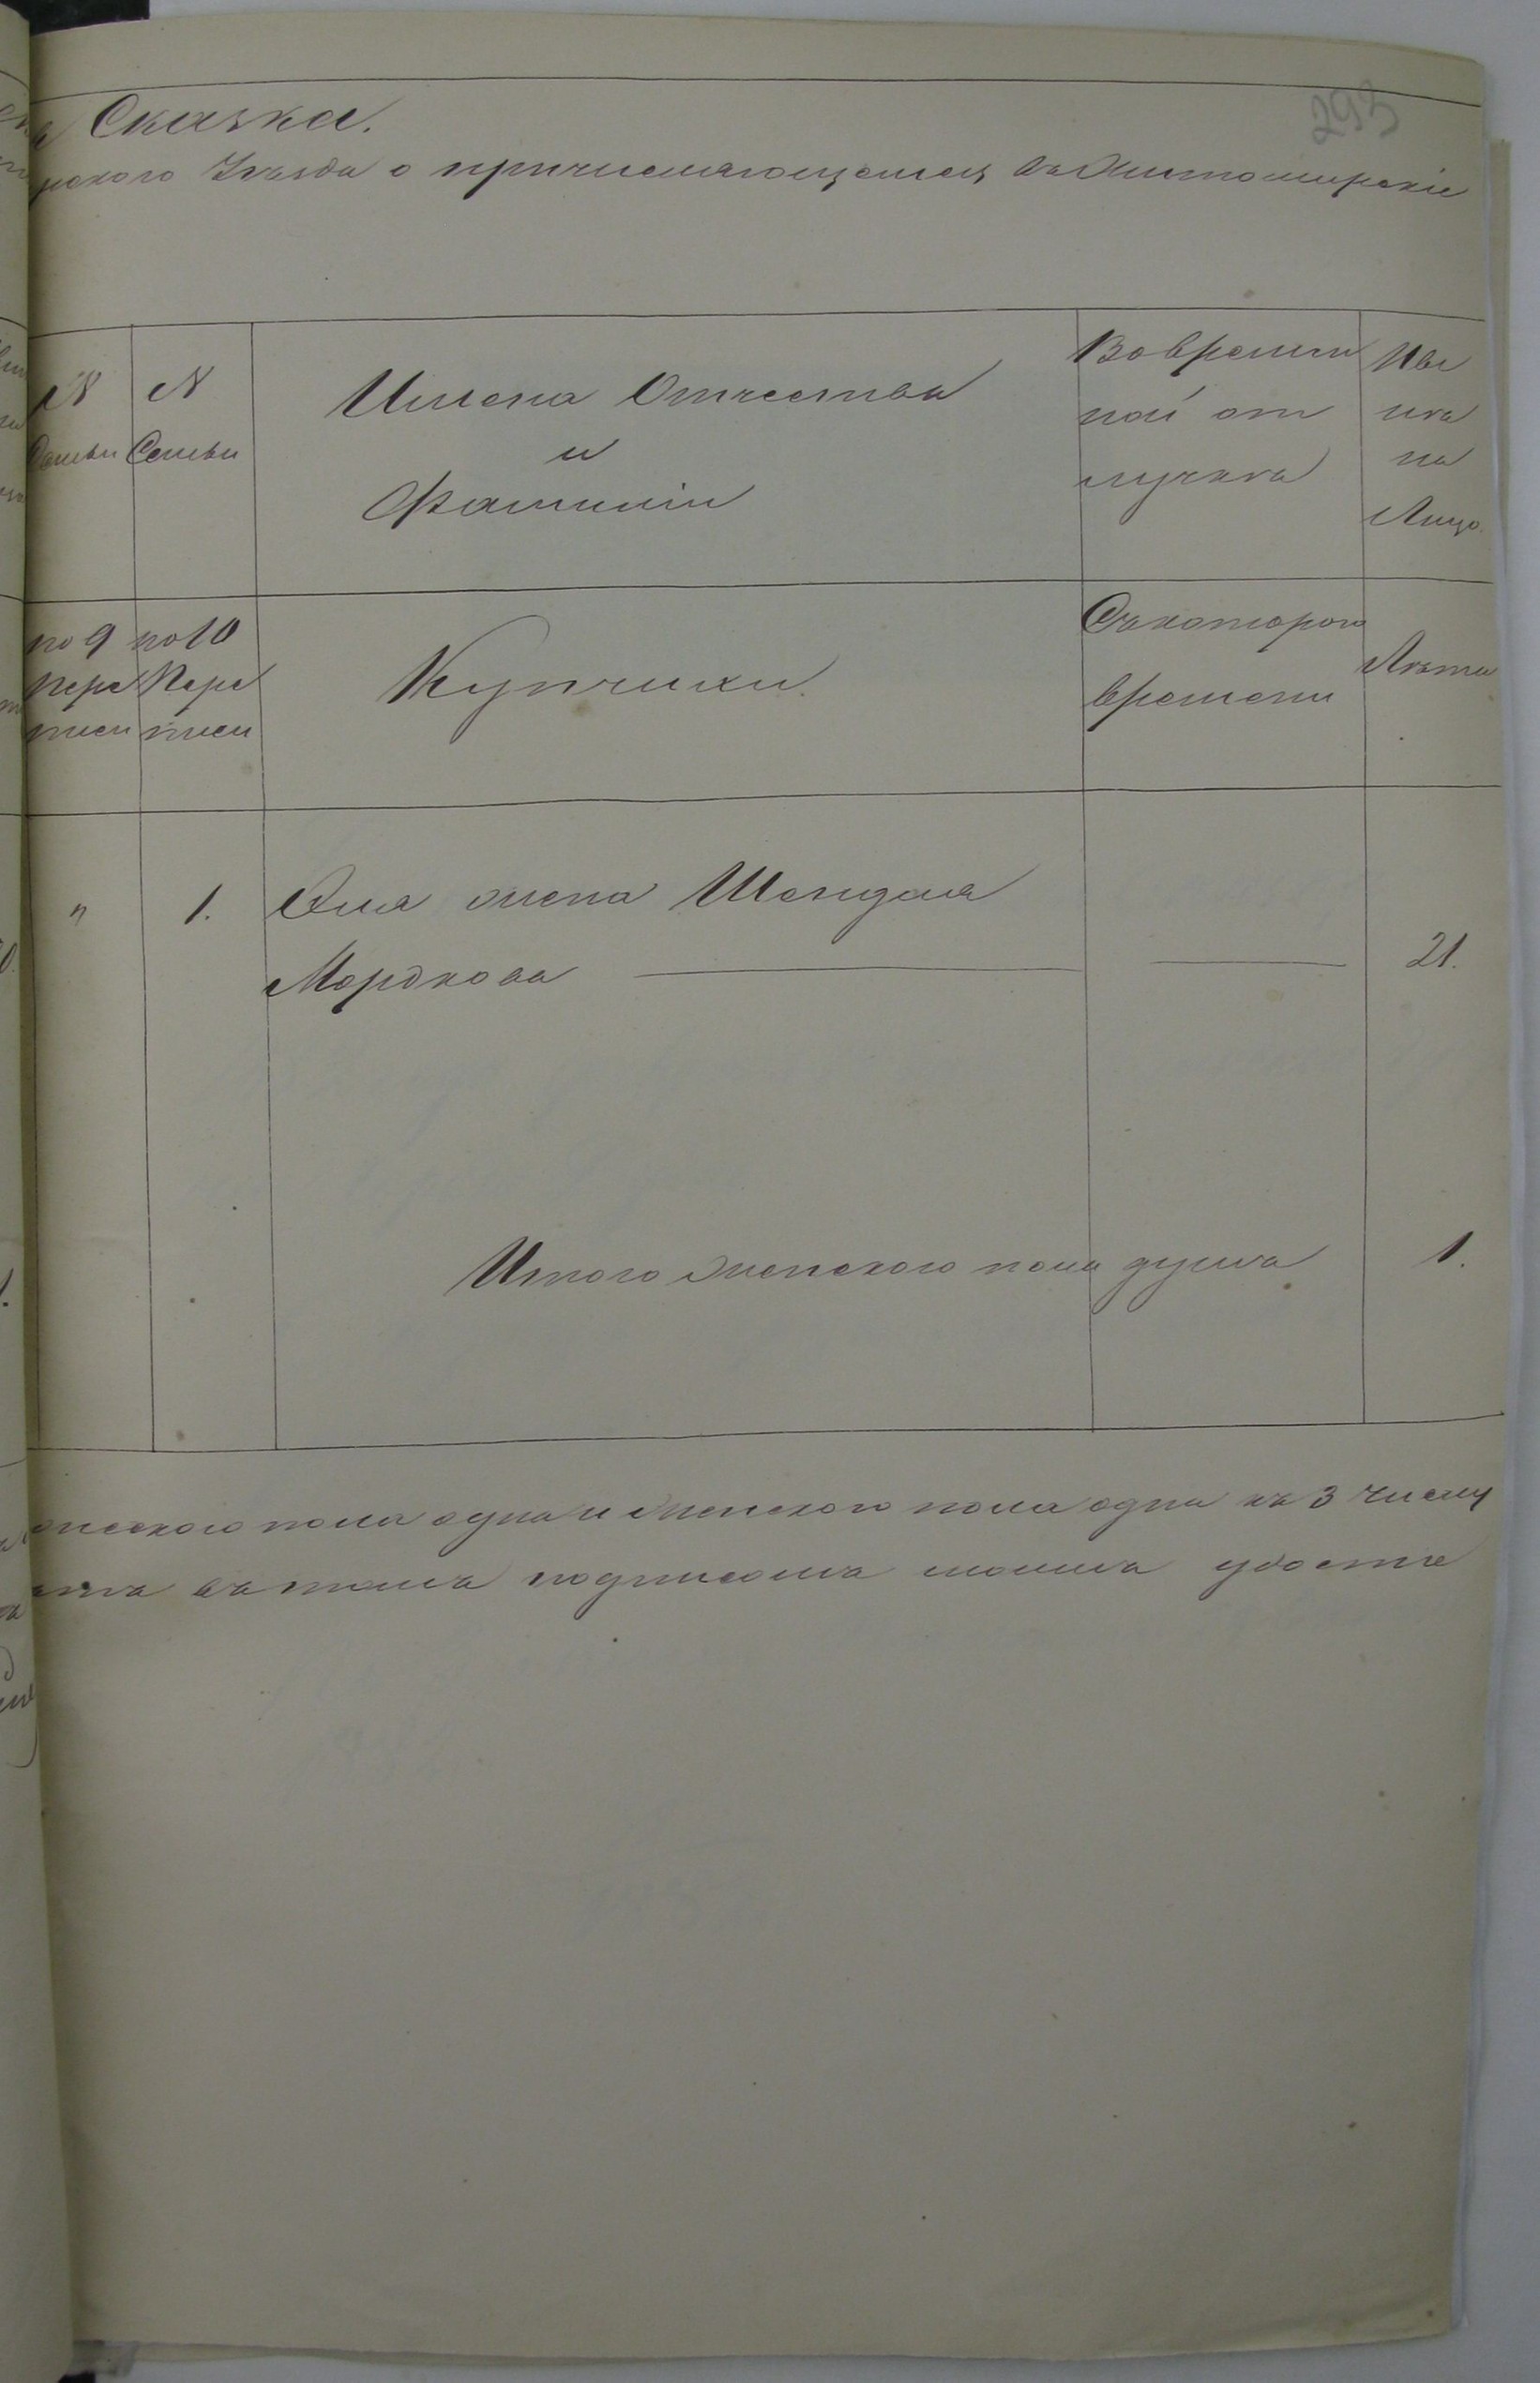 293
Сказка.
рского Уѣзда о причисляющемся въ Житомирскіе
№ Семьи
№ Семьи
Имена Отчества
и
Фамиліи
Во времен
ной от
лучкѣ
Нве
ика
на
Лицо.
по 9
Пере
писи
по 10
Пере
писи
Купчихи.
Съ котораго
времени
Лѣта
" 1. Эля жена Шендля
Мордкова 21.
Итого женскаго пола душъ 1.
жескаго пола одна и женскаго пола одна къ 3 числу
въ томъ подписомъ моимъ удосто